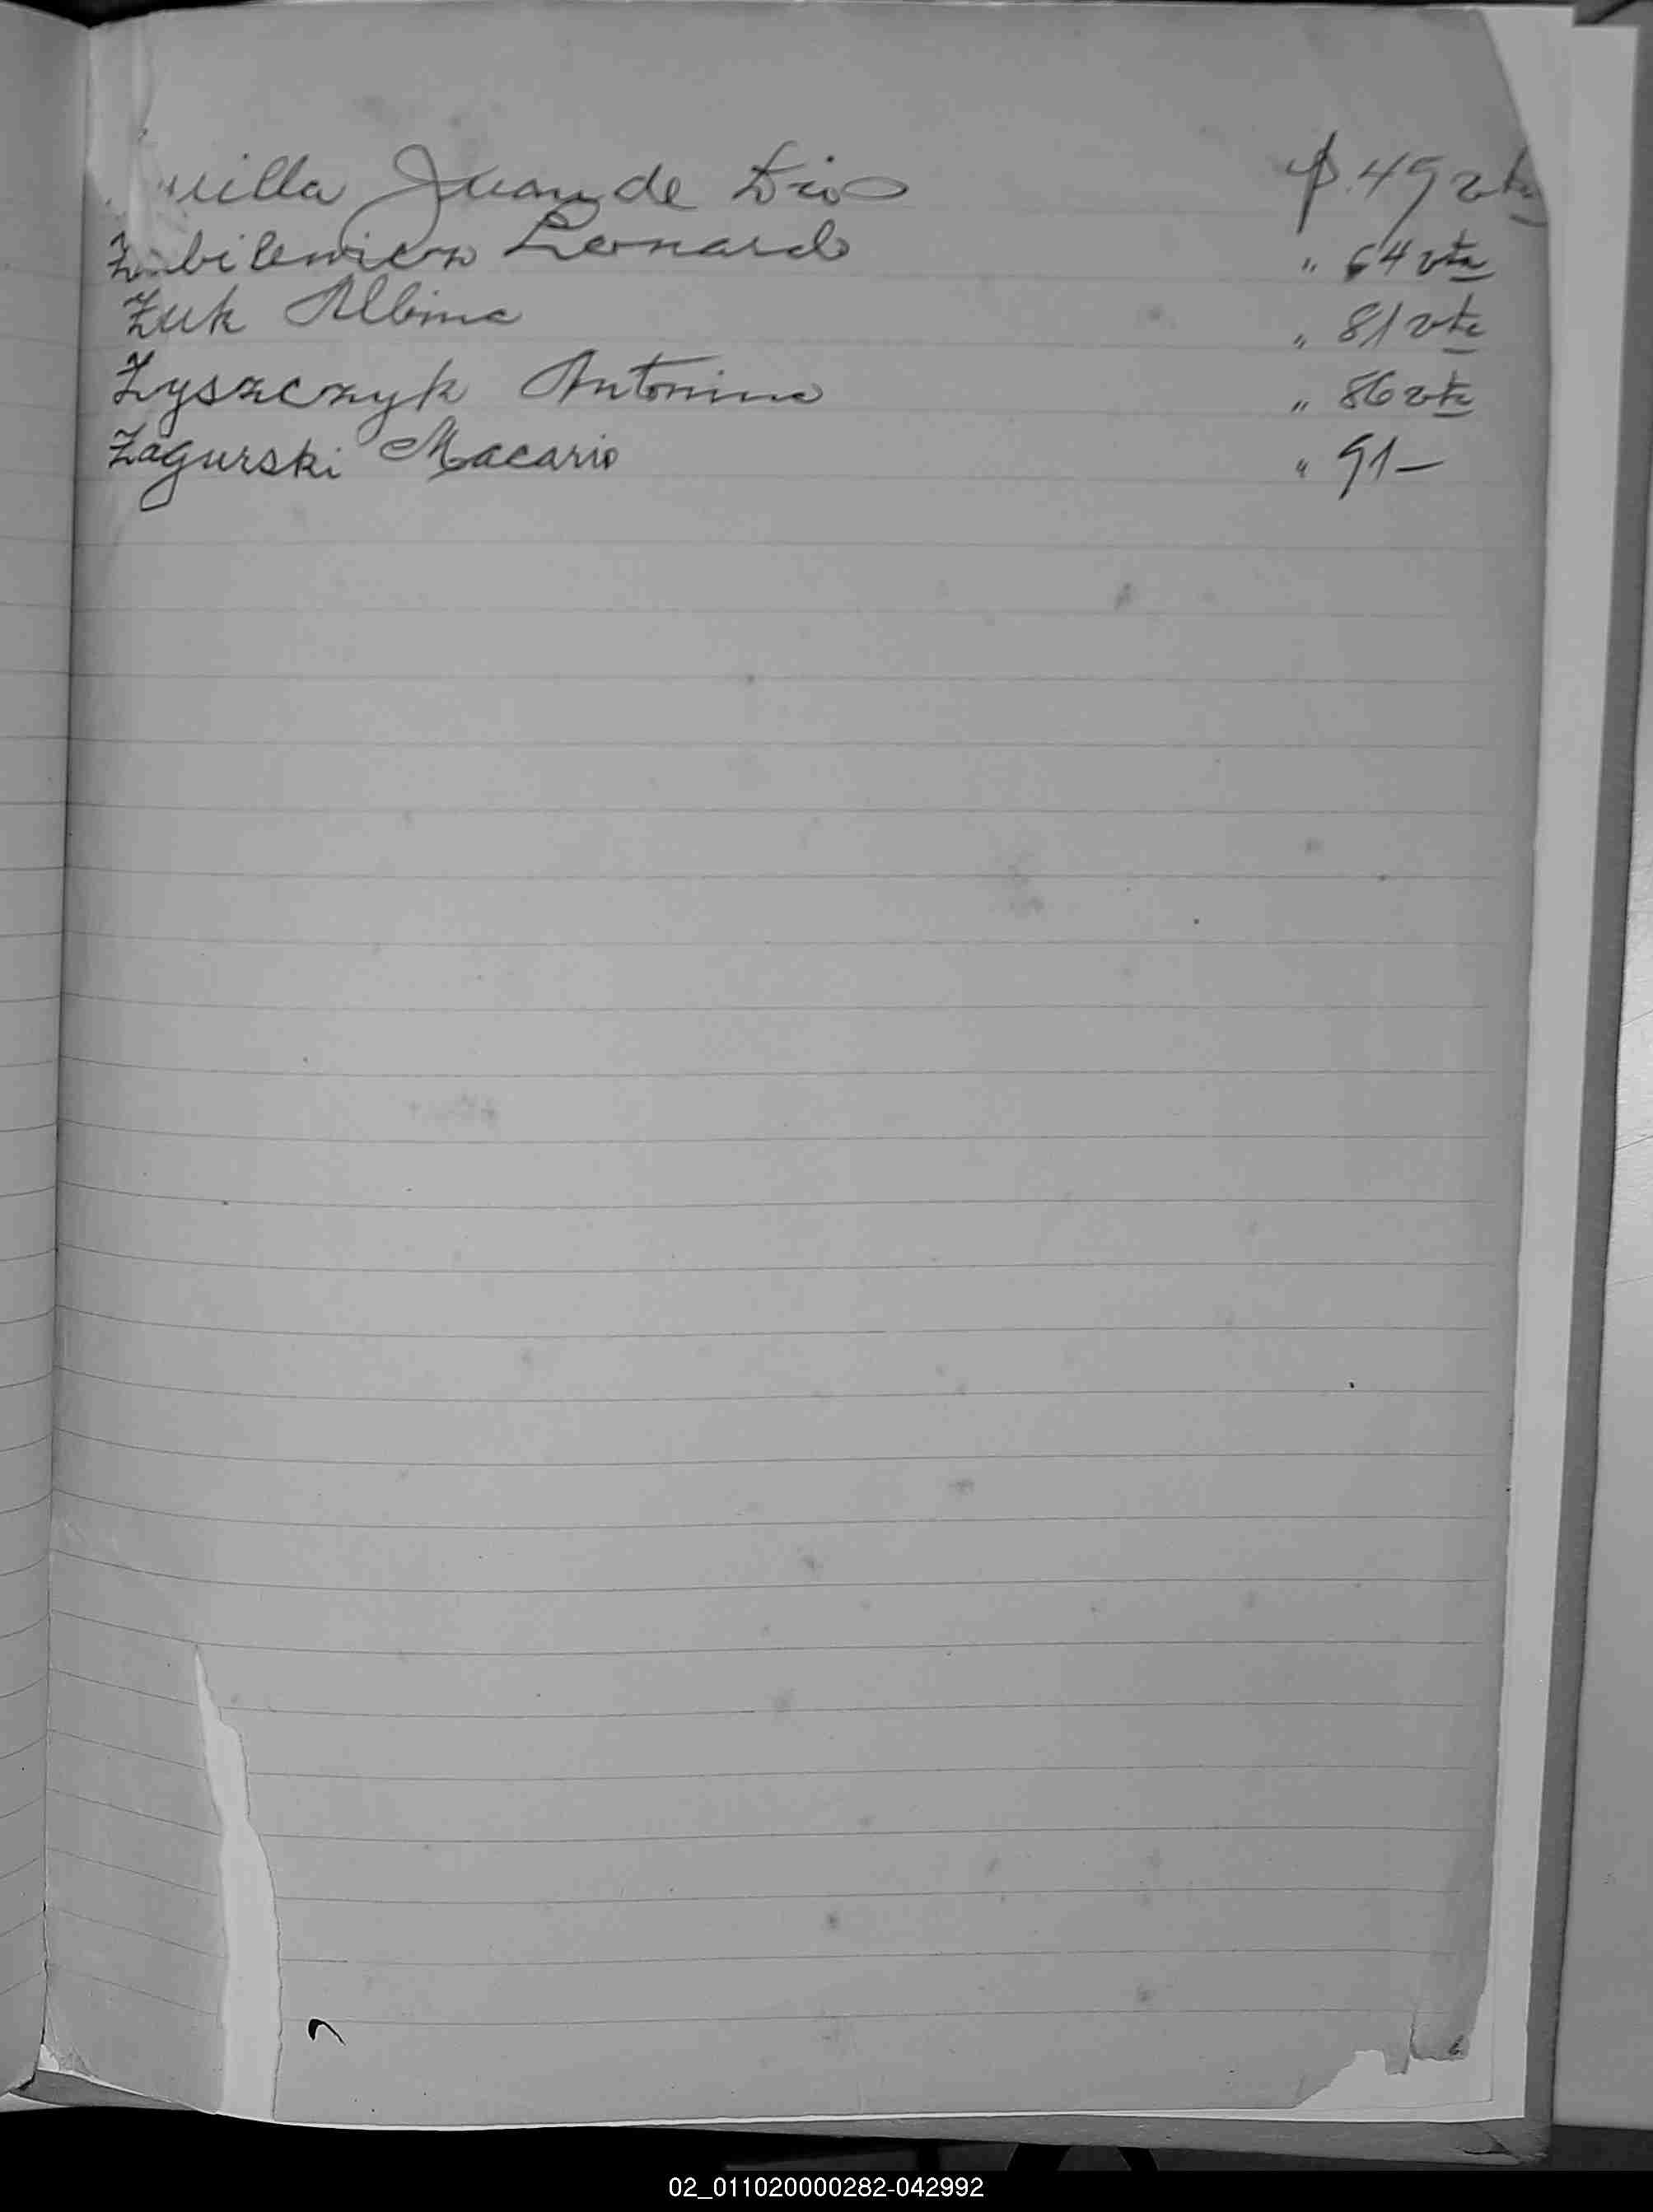 uilla Juan de Dios p. 49 vta
Zubilewicz Leonard " 64 vta
Zuk Albina " 81 vta
Zyszczyk Antonina " 86 vta
Zagurski Macario " 91 —
02_011020000282-042992